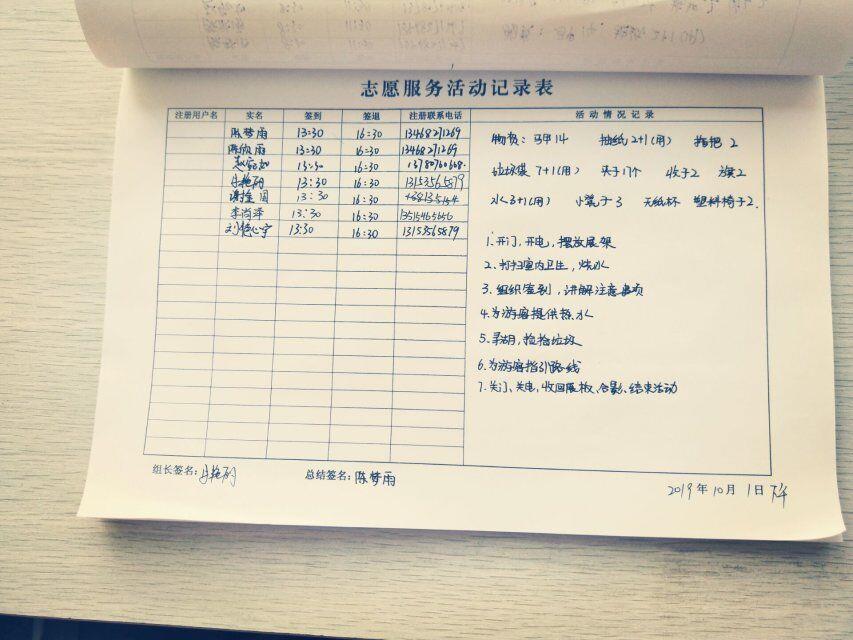 志愿服务活动记录表
注册用户名 实名 签到 签退 注册联系电话 活动情况记录
陈梦雨 13:30 16:30 13468271269
陈欣雨 13:30 16:30 13468271269
13:30 16:30 13780760608
马艳玥 13:30 16:30 13153565879
13:30 16:30
李尚泽 13:30 16:30 13515465650
刘艳心宇 13:30 16:30 13153565879
物资：马甲14 抽纸2+1(用) 拖把2
垃圾袋7+1(用) 夹子17个 收子2 旗2
水<3+1(用) 小凳子3 无纸杯 塑料椅子2.
1.开门，开电，摆放展架
2.打扫室内卫生，烧水
3.组织签到，讲解注意事项
4.为游客提供热水
5.寻湖，捡拾垃圾
6.为游客指引路线
7.关门、关电，收回展板、合影、结束活动
组长签名：马艳玥 总结签名：陈梦雨
2019年10月1日下午